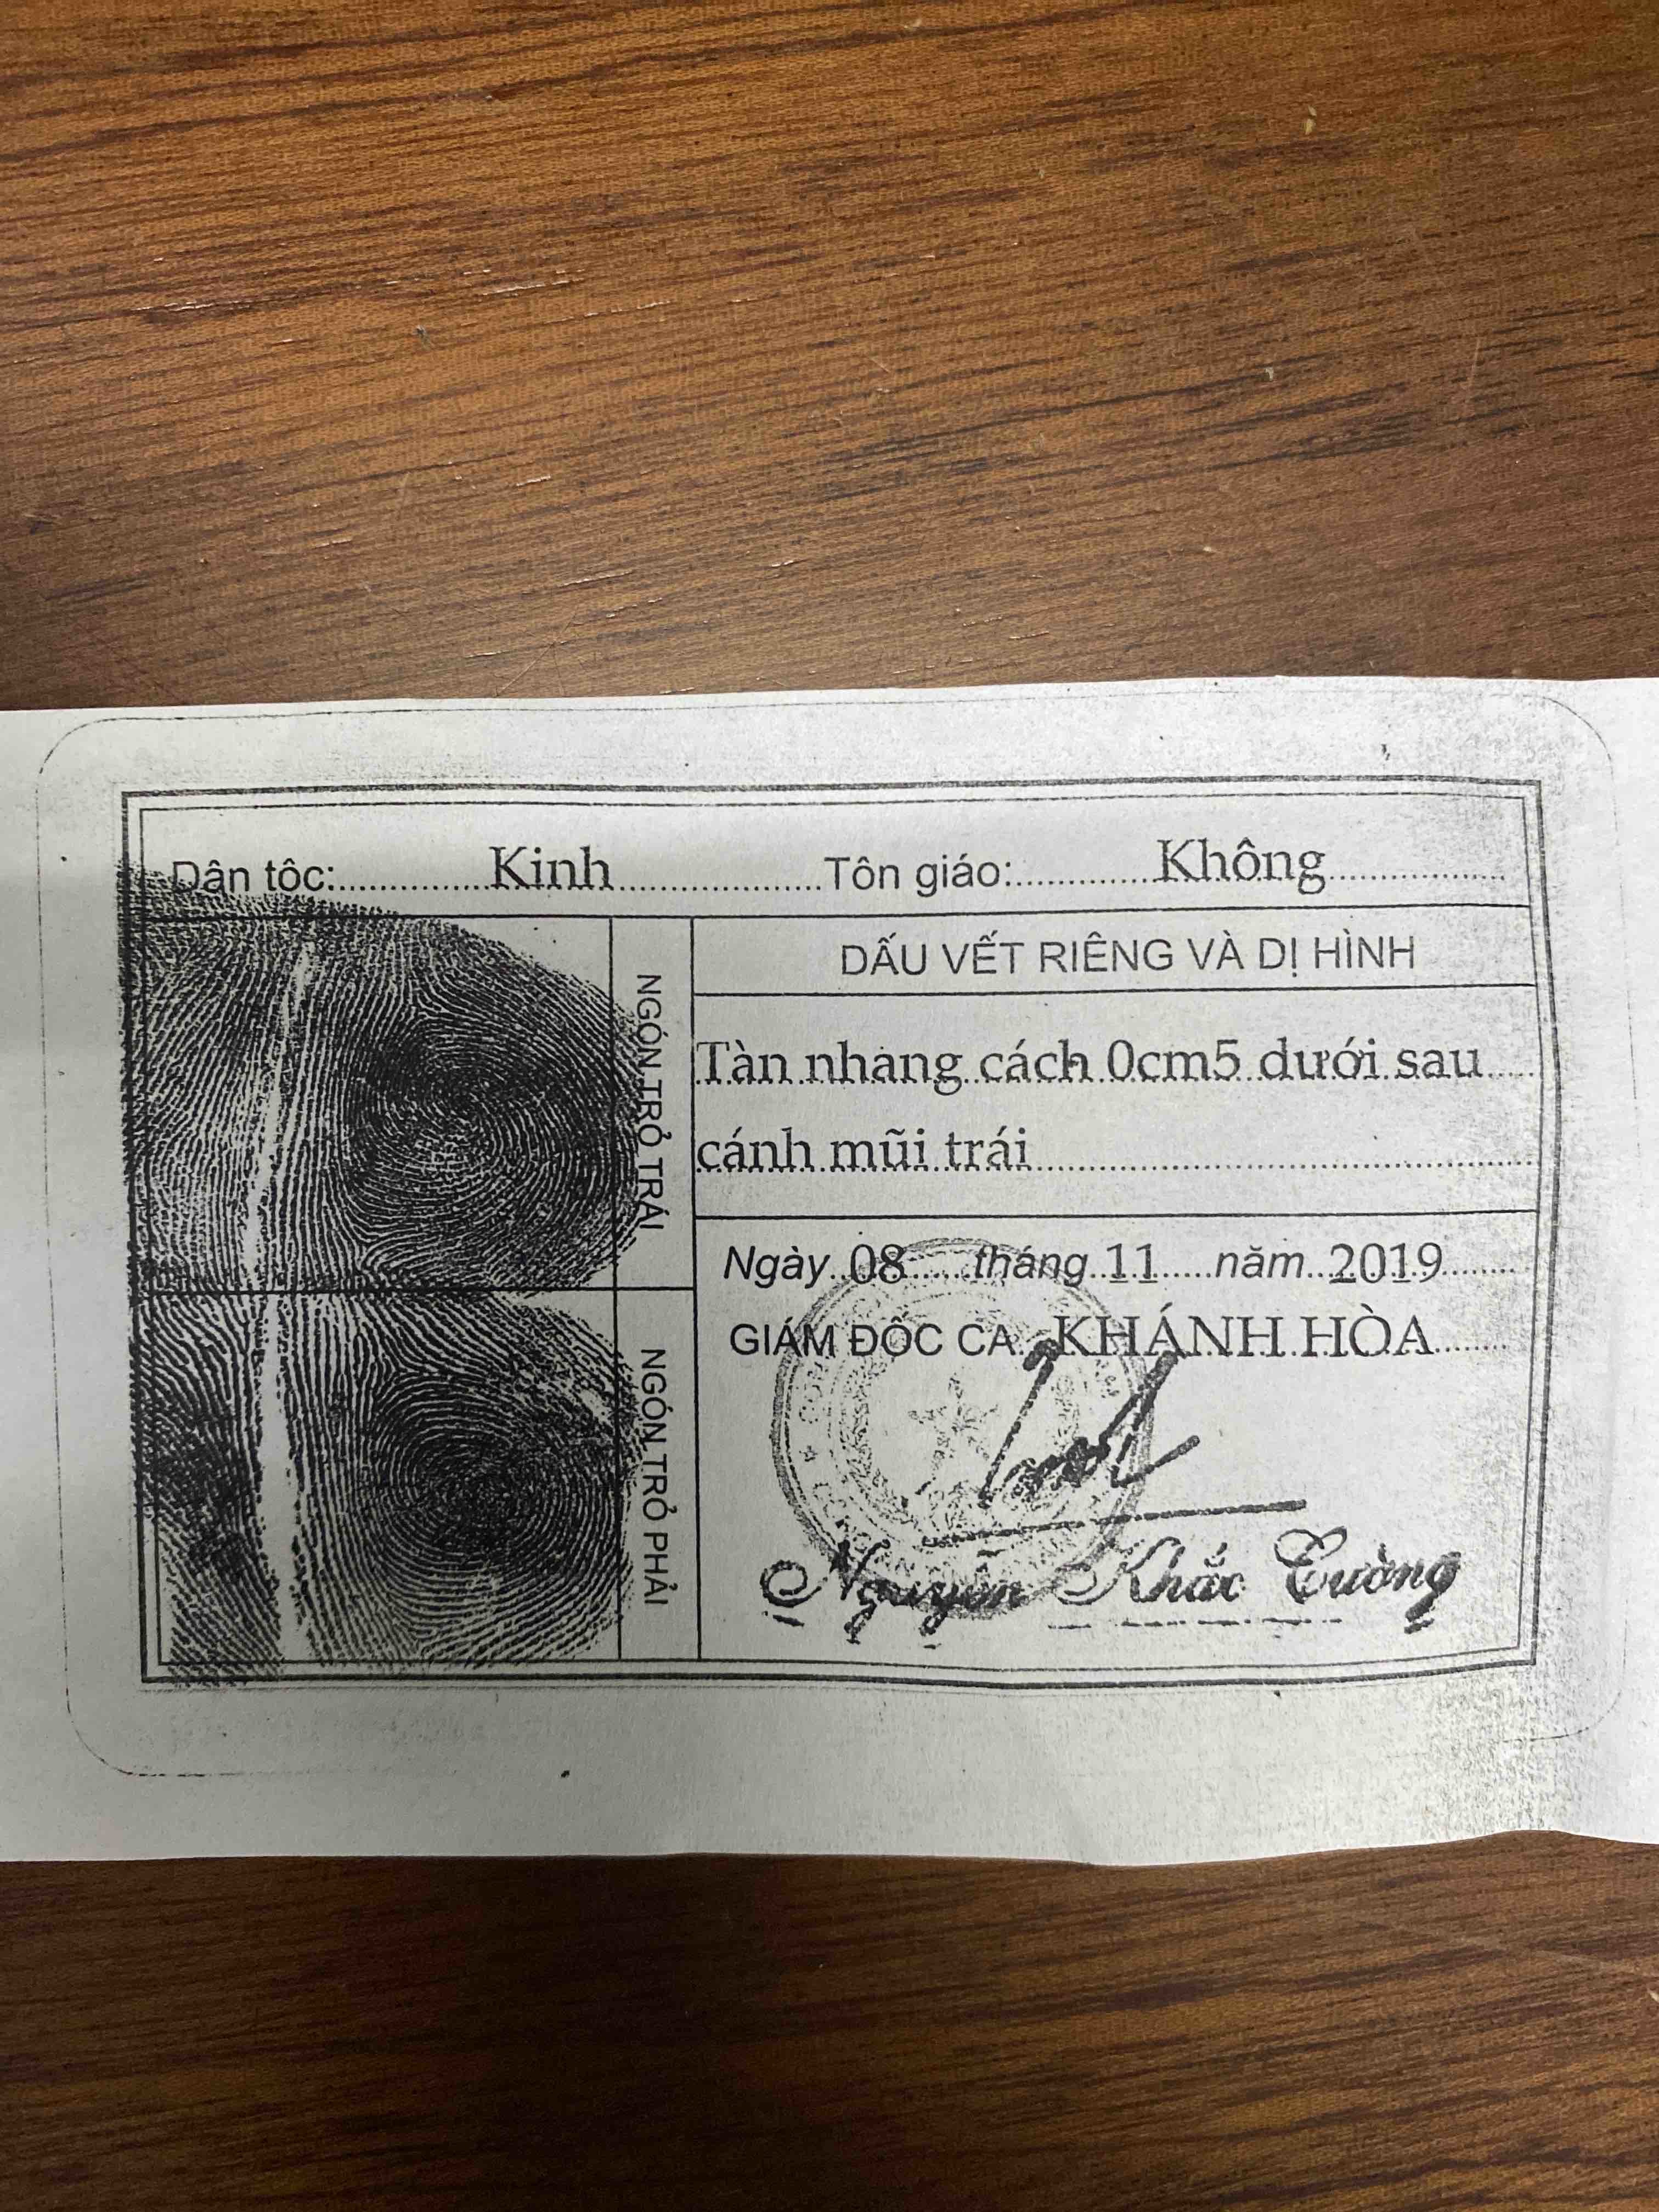 Dân tộc: Kinh Tôn giáo: Không
NGÓN TRỎ TRÁI
NGÓN TRỎ PHẢI
DẤU VẾT RIÊNG VÀ DỊ HÌNH
Tàn nhang cách 0cm5 dưới sau
cánh mũi trái
Ngày 08 tháng 11 năm 2019
GIÁM ĐỐC CA KHÁNH HÒA
Nguyễn Khắc Cường